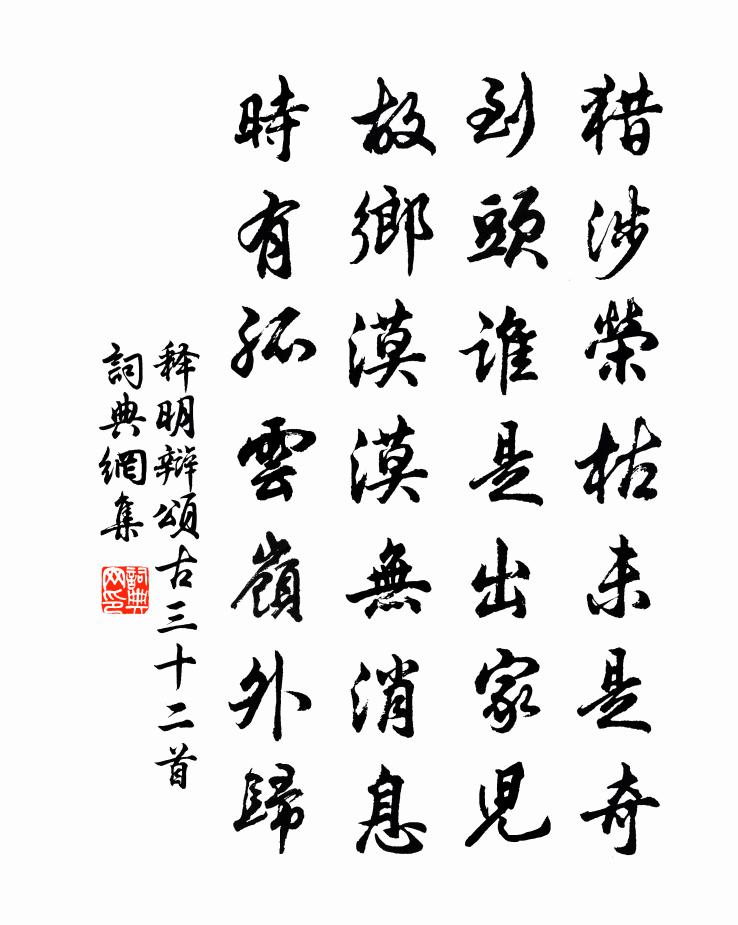 猎涉榮枯未是奇
到頭誰是出家児
故鄉漠漠無消息
時有孤雲嶺外歸
释明辯頌古三十二首
詞典網集
詞典網印